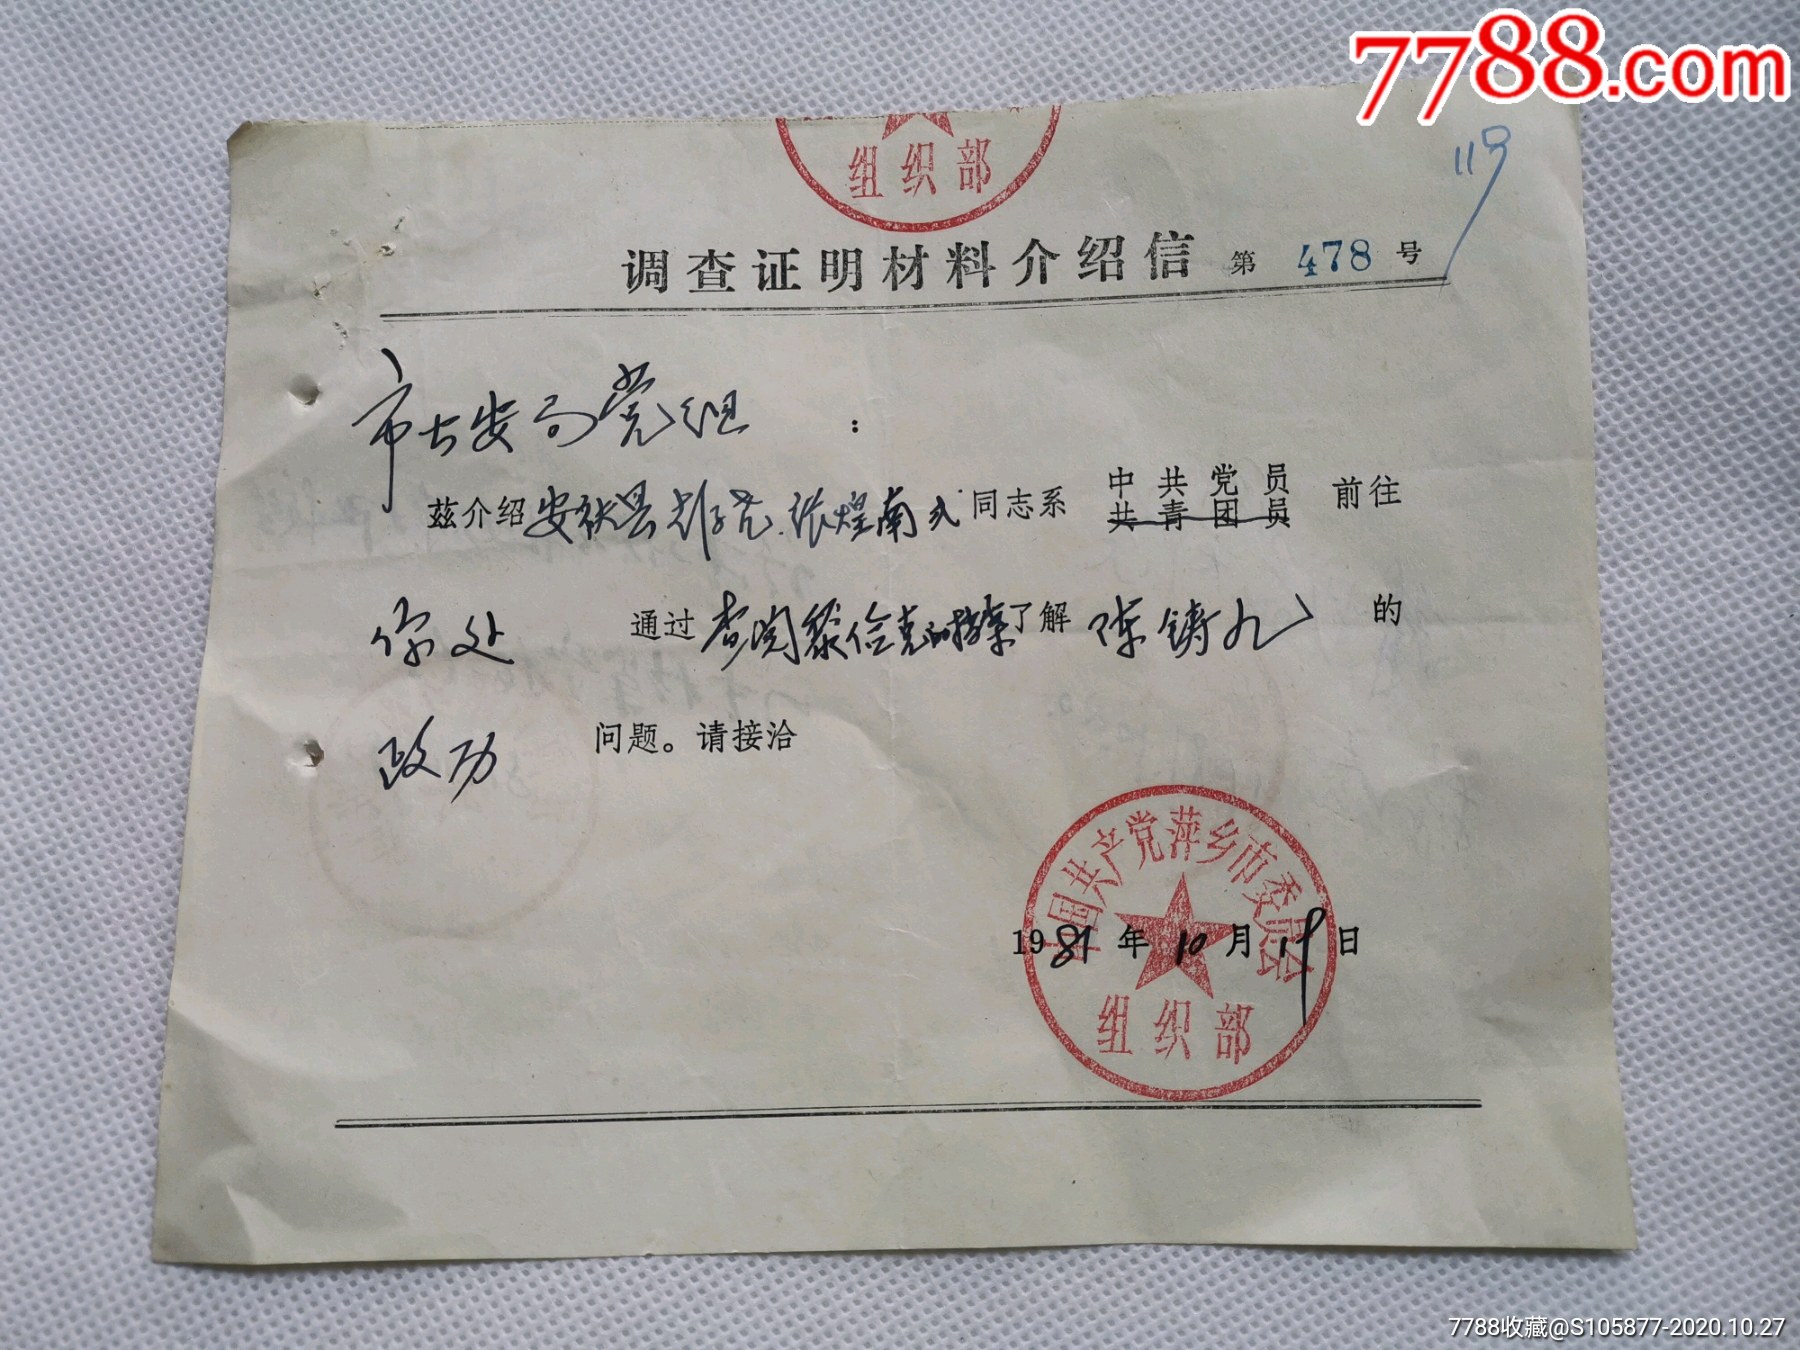 7788.com
119
组织部
调查证明材料介绍信 第 478 号
市公安局党组 :
兹介绍安袱县 张煌南 同志系 中共党员 共青团员 前往
你处 通过 查阅黎俭克的档案 了解 陈铸九 的
政历 问题。请接洽
中国共产党萍乡市委员会
1981年10月19日
组织部
7788收藏@S105877-2020.10.27